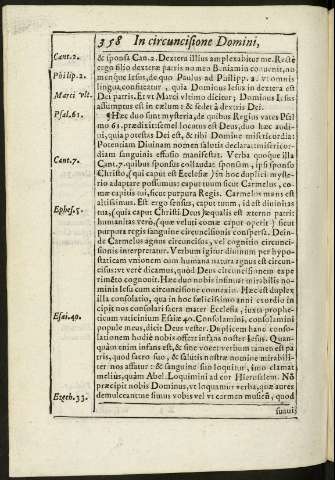 358 In circuncisione Domini,
Cant.2. & sponsa Can.2. Dextera illius amplexabitur me. Recte
ergo filio dexteræ patris nomen Beniamin conuenit, no
Philip.2. menque Iesus, de quo Paulus ad Philipp. 2. vt omnis
lingua confiteatur, quia Dominus Iesus in dextera est
Marci vlt. Dei patris. Et vt Marci vltimo dicitur; Dominus Iesus
assumptus est in cælum: & sedet à dextris Dei.
¶Hæc duo sunt mysteria, de quibus Regius vates Psal
Psal.61. mo 61. prædixit: semel locutus est Deus, duo hæc audi-
ui, quia potestas Dei est, & tibi Domine misericordia:
Potentiam Diuinam nomen salutis declarat: misericor-
diam sanguinis effusio manifestat. Verba quoque illa
Cant.7. Cant.7. quibus sponsus collaudat sponsam, ipsi sponso
Christo, (qui caput est Ecclesiæ) in hoc duplici myste-
rio adaptare possumus: caput tuum sicut Carmelus, co-
mæ capitis tui, sicut purpura Regis. Carmelus mons est
altissimus. Est ergo sensus, caput tuum, id est diuinitas
Ephes.5. tua, (quia caput Christi Deus) æqualis est æterno patri:
humanitas verò, (quæ veluti comæ caput operit) sicut
purpura regis sanguine circuncisionis conspersa. Dein-
de Carmelus agnus circuncisus, vel cognitio circunci-
sionis interpretatur. Verbum igitur diuinum per hypo-
staticam vnionem cum humana natura agnus est circun-
cisus: vt verè dicamus, quòd Deus circuncisionem expe
rimẽto cognouit. Hæc duo nobis insinuat mirabilis no-
minis Iesu cum circuncisione connexio. Hæc est duplex
illa consolatio, qua in hoc fælicissimo anni exordio in
cipit nos consolari sacra mater Ecclesia, iuxta prophe-
Esai.40. ticum vaticinium Esaiæ 40. Consolamini, consolamini
popule meus, dicit Deus vester. Duplicem hanc conso-
lationem hodiè nobis offert infans noster Iesus. Quan-
quàm enim infans est, & sine voce: verbum tamen est pa
tris, quod sacro suo, & salutis nostræ nomine mirabili-
ter nos affatur: & sanguine suo loquitur, imo clamat
meliùs, quàm Abel. Loquimini ad cor Hierusalem. Nõ
præcipit nobis Dominus, vt loquamur verba, quæ aures
Ezech.33. demulceant: ne simus vobis vel vt carmen musicũ, quod
suaui